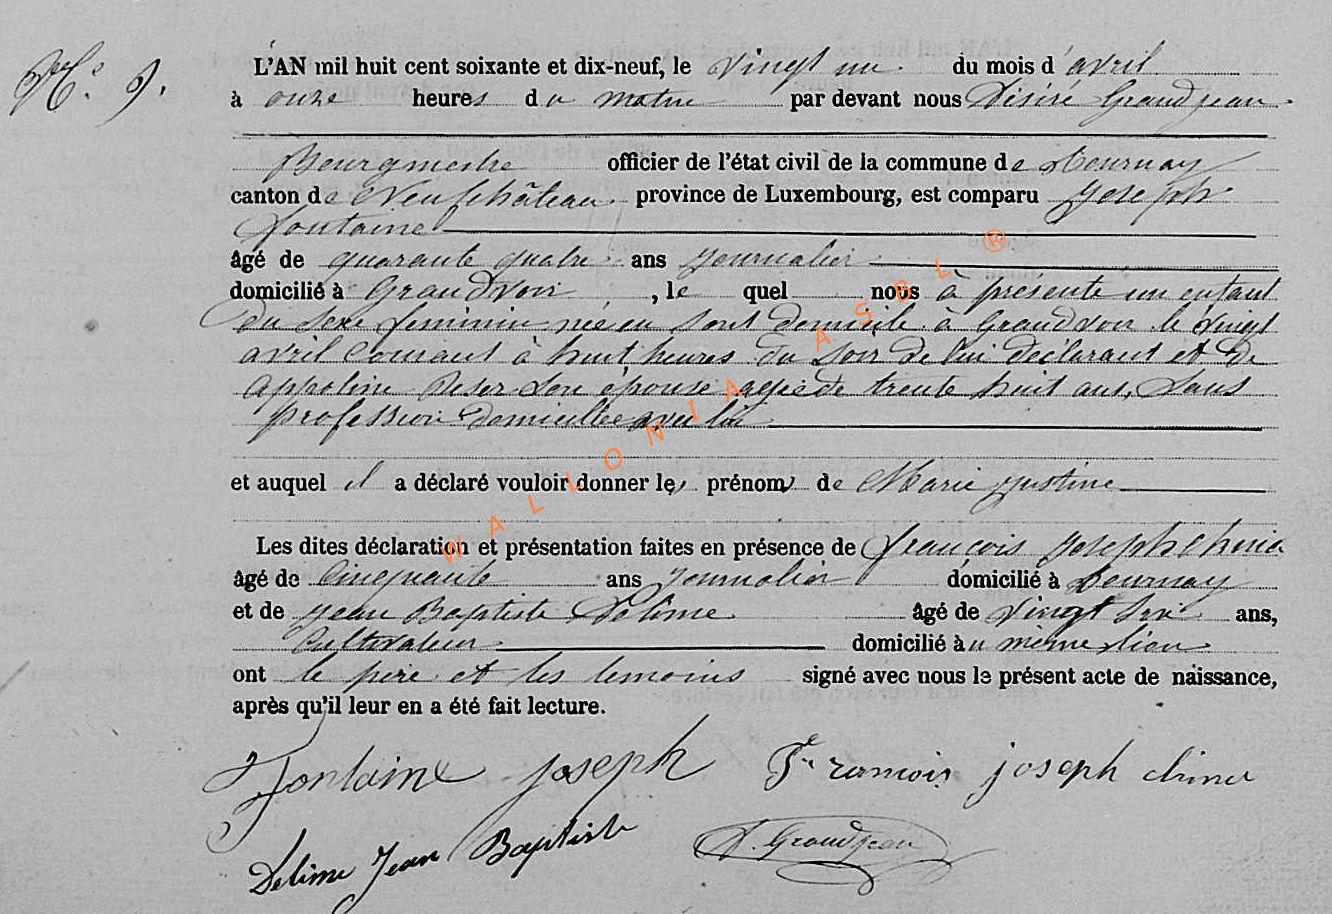 N.º 9.
L'AN mil huit cent soixante et dix-neuf, le vingt un du mois d'avril
à onze heures du matin par devant nous Désiré Grandjean
Bourgmestre officier de l'état civil de la commune de Tournay
canton de Neufchâteau province de Luxembourg, est comparu Joseph
Fontaine
âgé de quarante quatre ans journalier
domicilié à Grandvoir, le quel nous à présenté un enfant
du sexe feminin née en sont domicile à Grandvoir le vingt
avril courant à huit heures du soir de lui déclarant et de
Appoline son épouse agée de trente huit ans, sans
profession domiciliée avec lui
et auquel il a déclaré vouloir donner les prénoms de Marie Justine
Les dites déclaration et présentation faites en présence de François Joseph
âgé de Cinquante ans journalier domicilié à Tournay
et de Jean Baptiste Delime âgé de vingt six ans,
Cultivateur domicilié au même lieu
ont le père et les temoins signé avec nous le présent acte de naissance,
après qu'il leur en a été fait lecture.
Fontaine Joseph Francois joseph
Delime Jean Baptiste D. Grandjean
WALLONIA ASBL ®